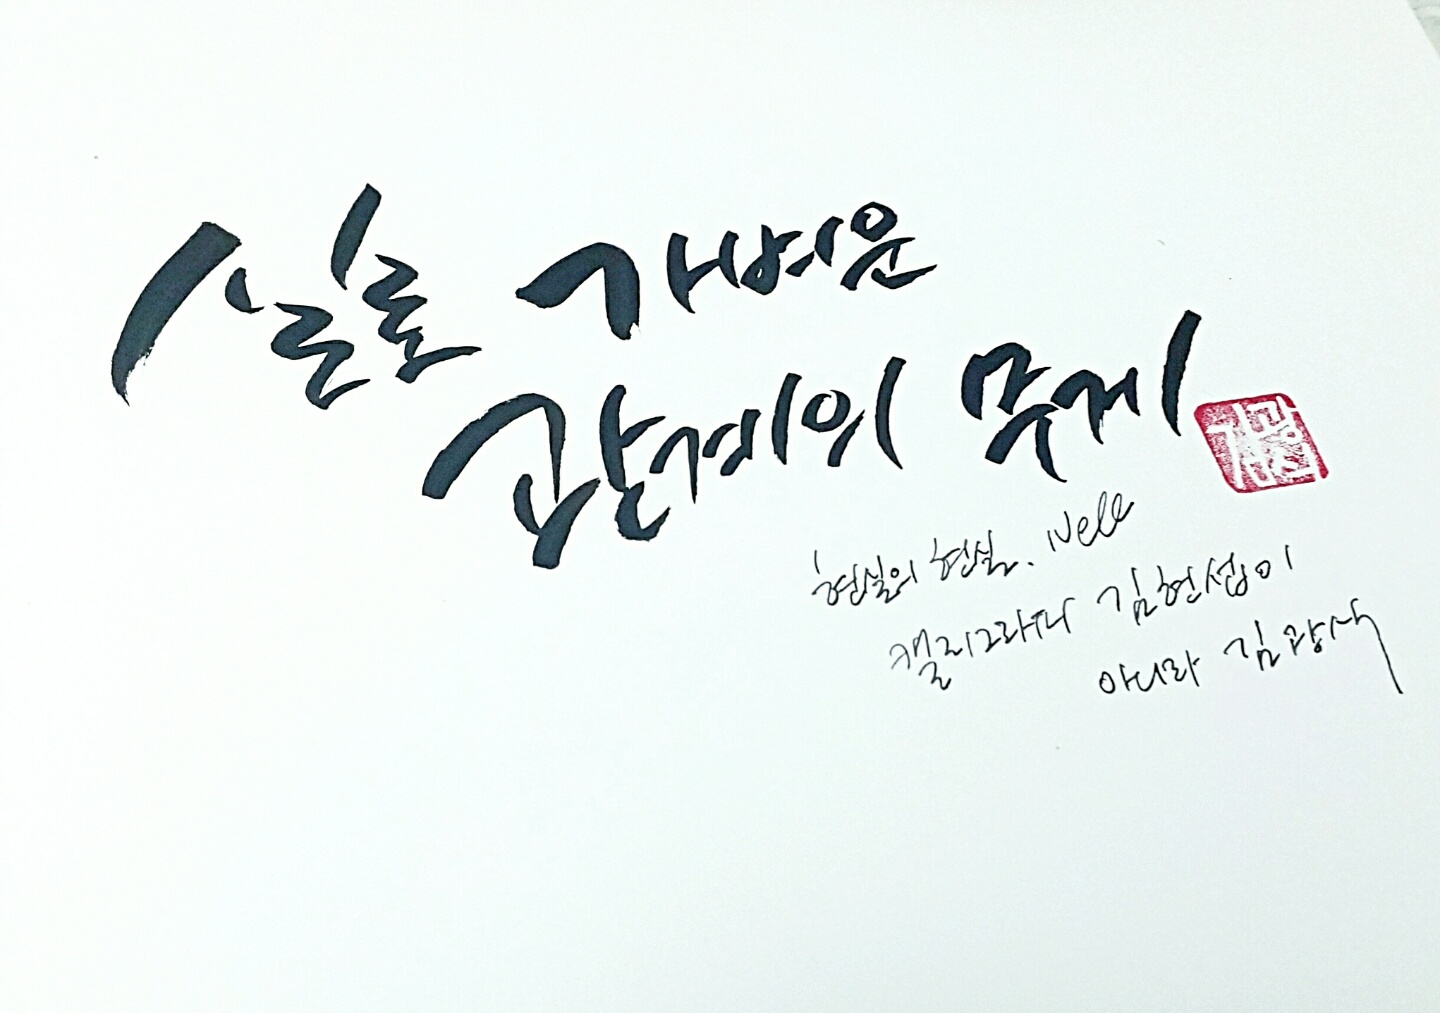 실로 가벼운
관계의 무게
현실의 현실. Nell
캘리그라피 김현섭이
아니라 김광석